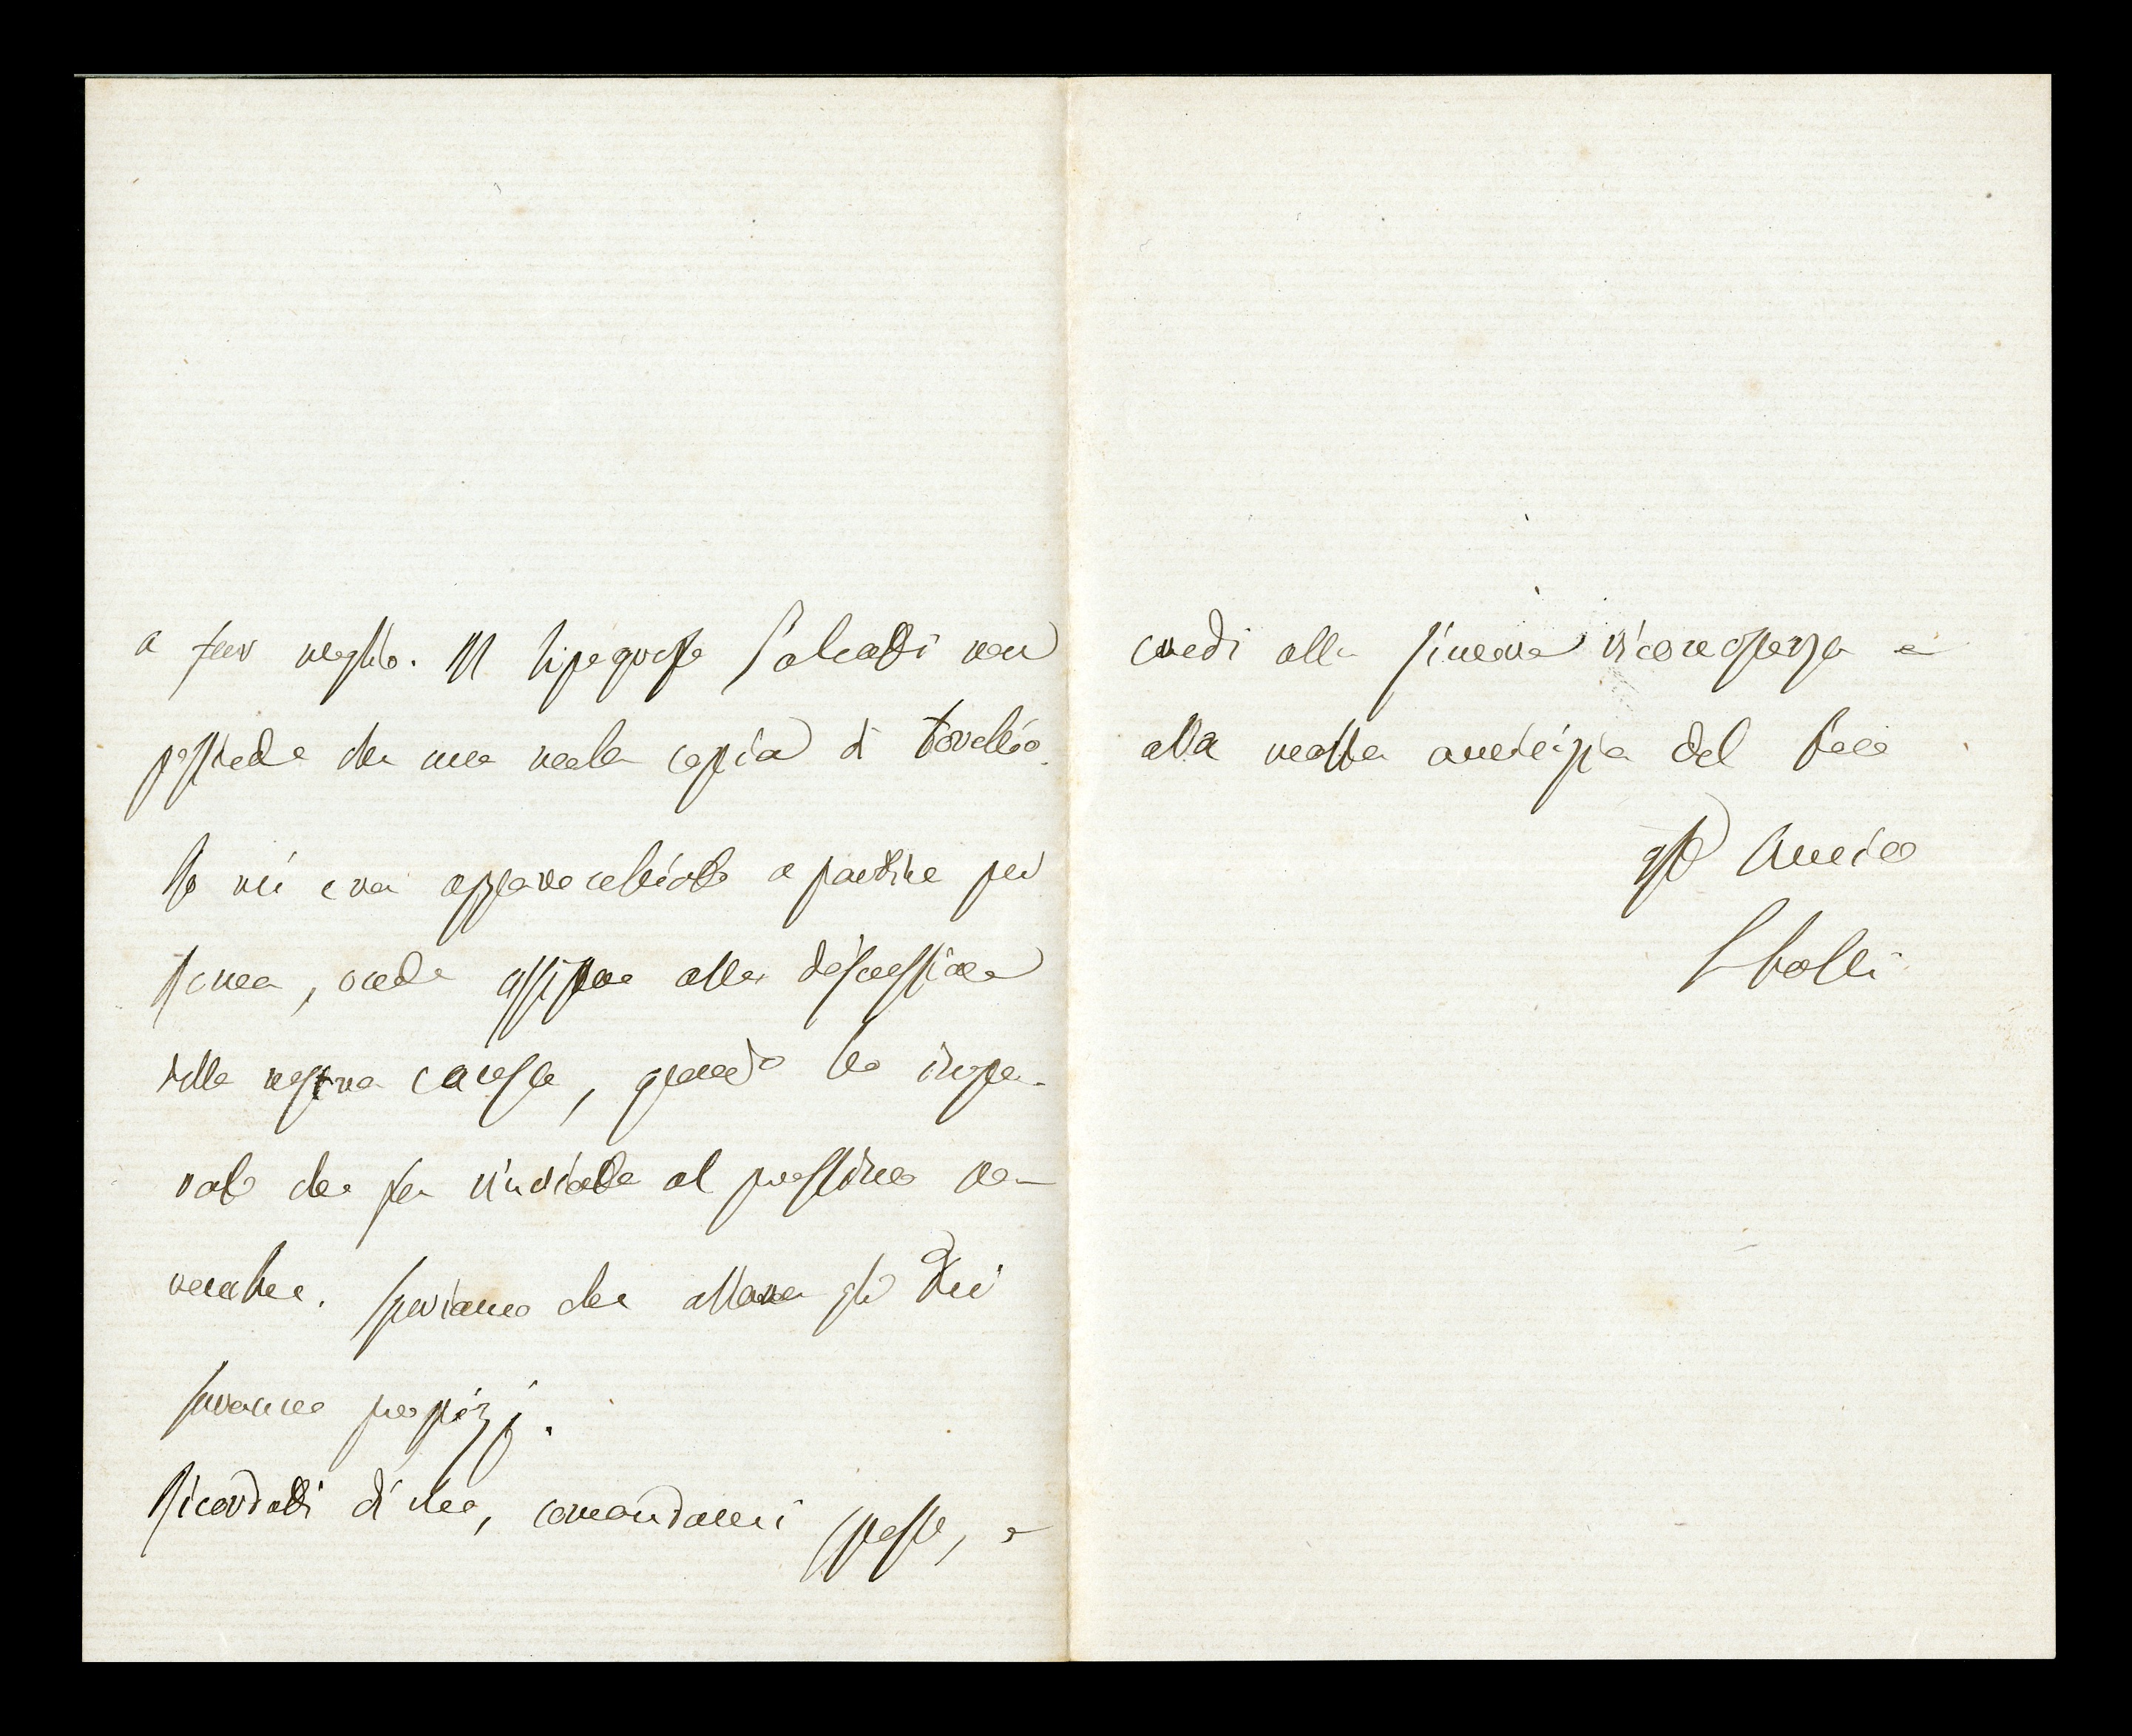 a far meglio. Il tipografo Salvatti non
possiede che una mala copia di torchio.
Io mi era apparecchiato a partire per
Roma, onde assistere alla discussione
della nostra causa, quando ho impa-
rato che fu rinviata al prossimo no-
vembre. Speriamo che allora gli Dei
saranno propizj.
Ricordati di me, comandami spesso, e
credi alla sincera riconoscenza e
alla molta amicizia del tuo
aff.o Amico